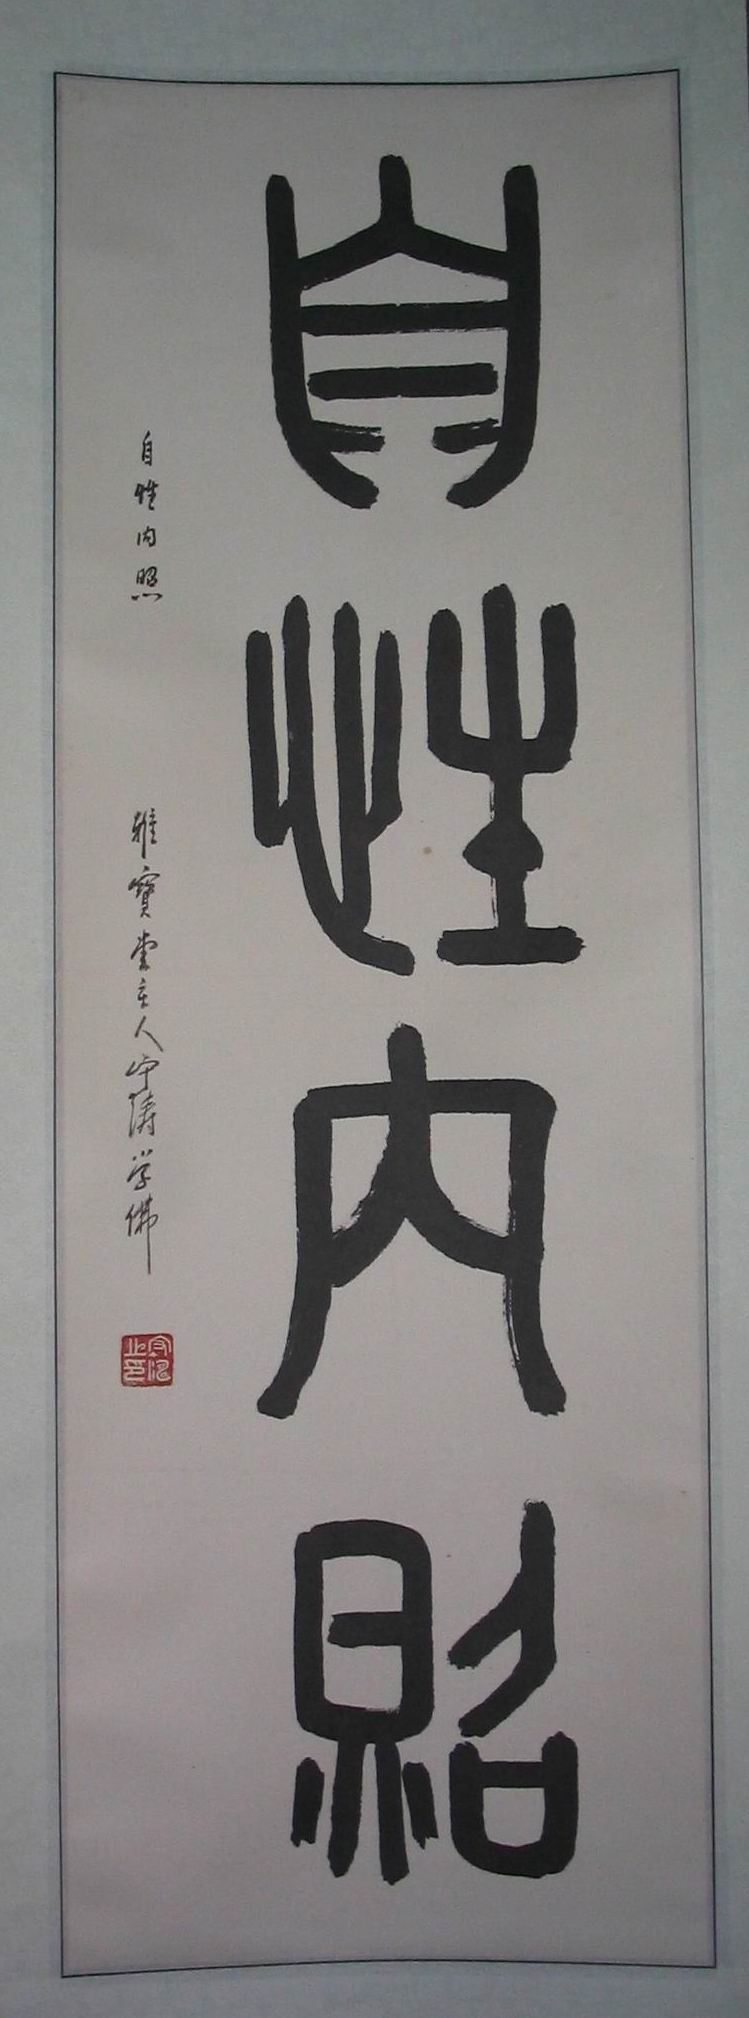 自性内照
自性内照
雅寶堂主人守濤学佛